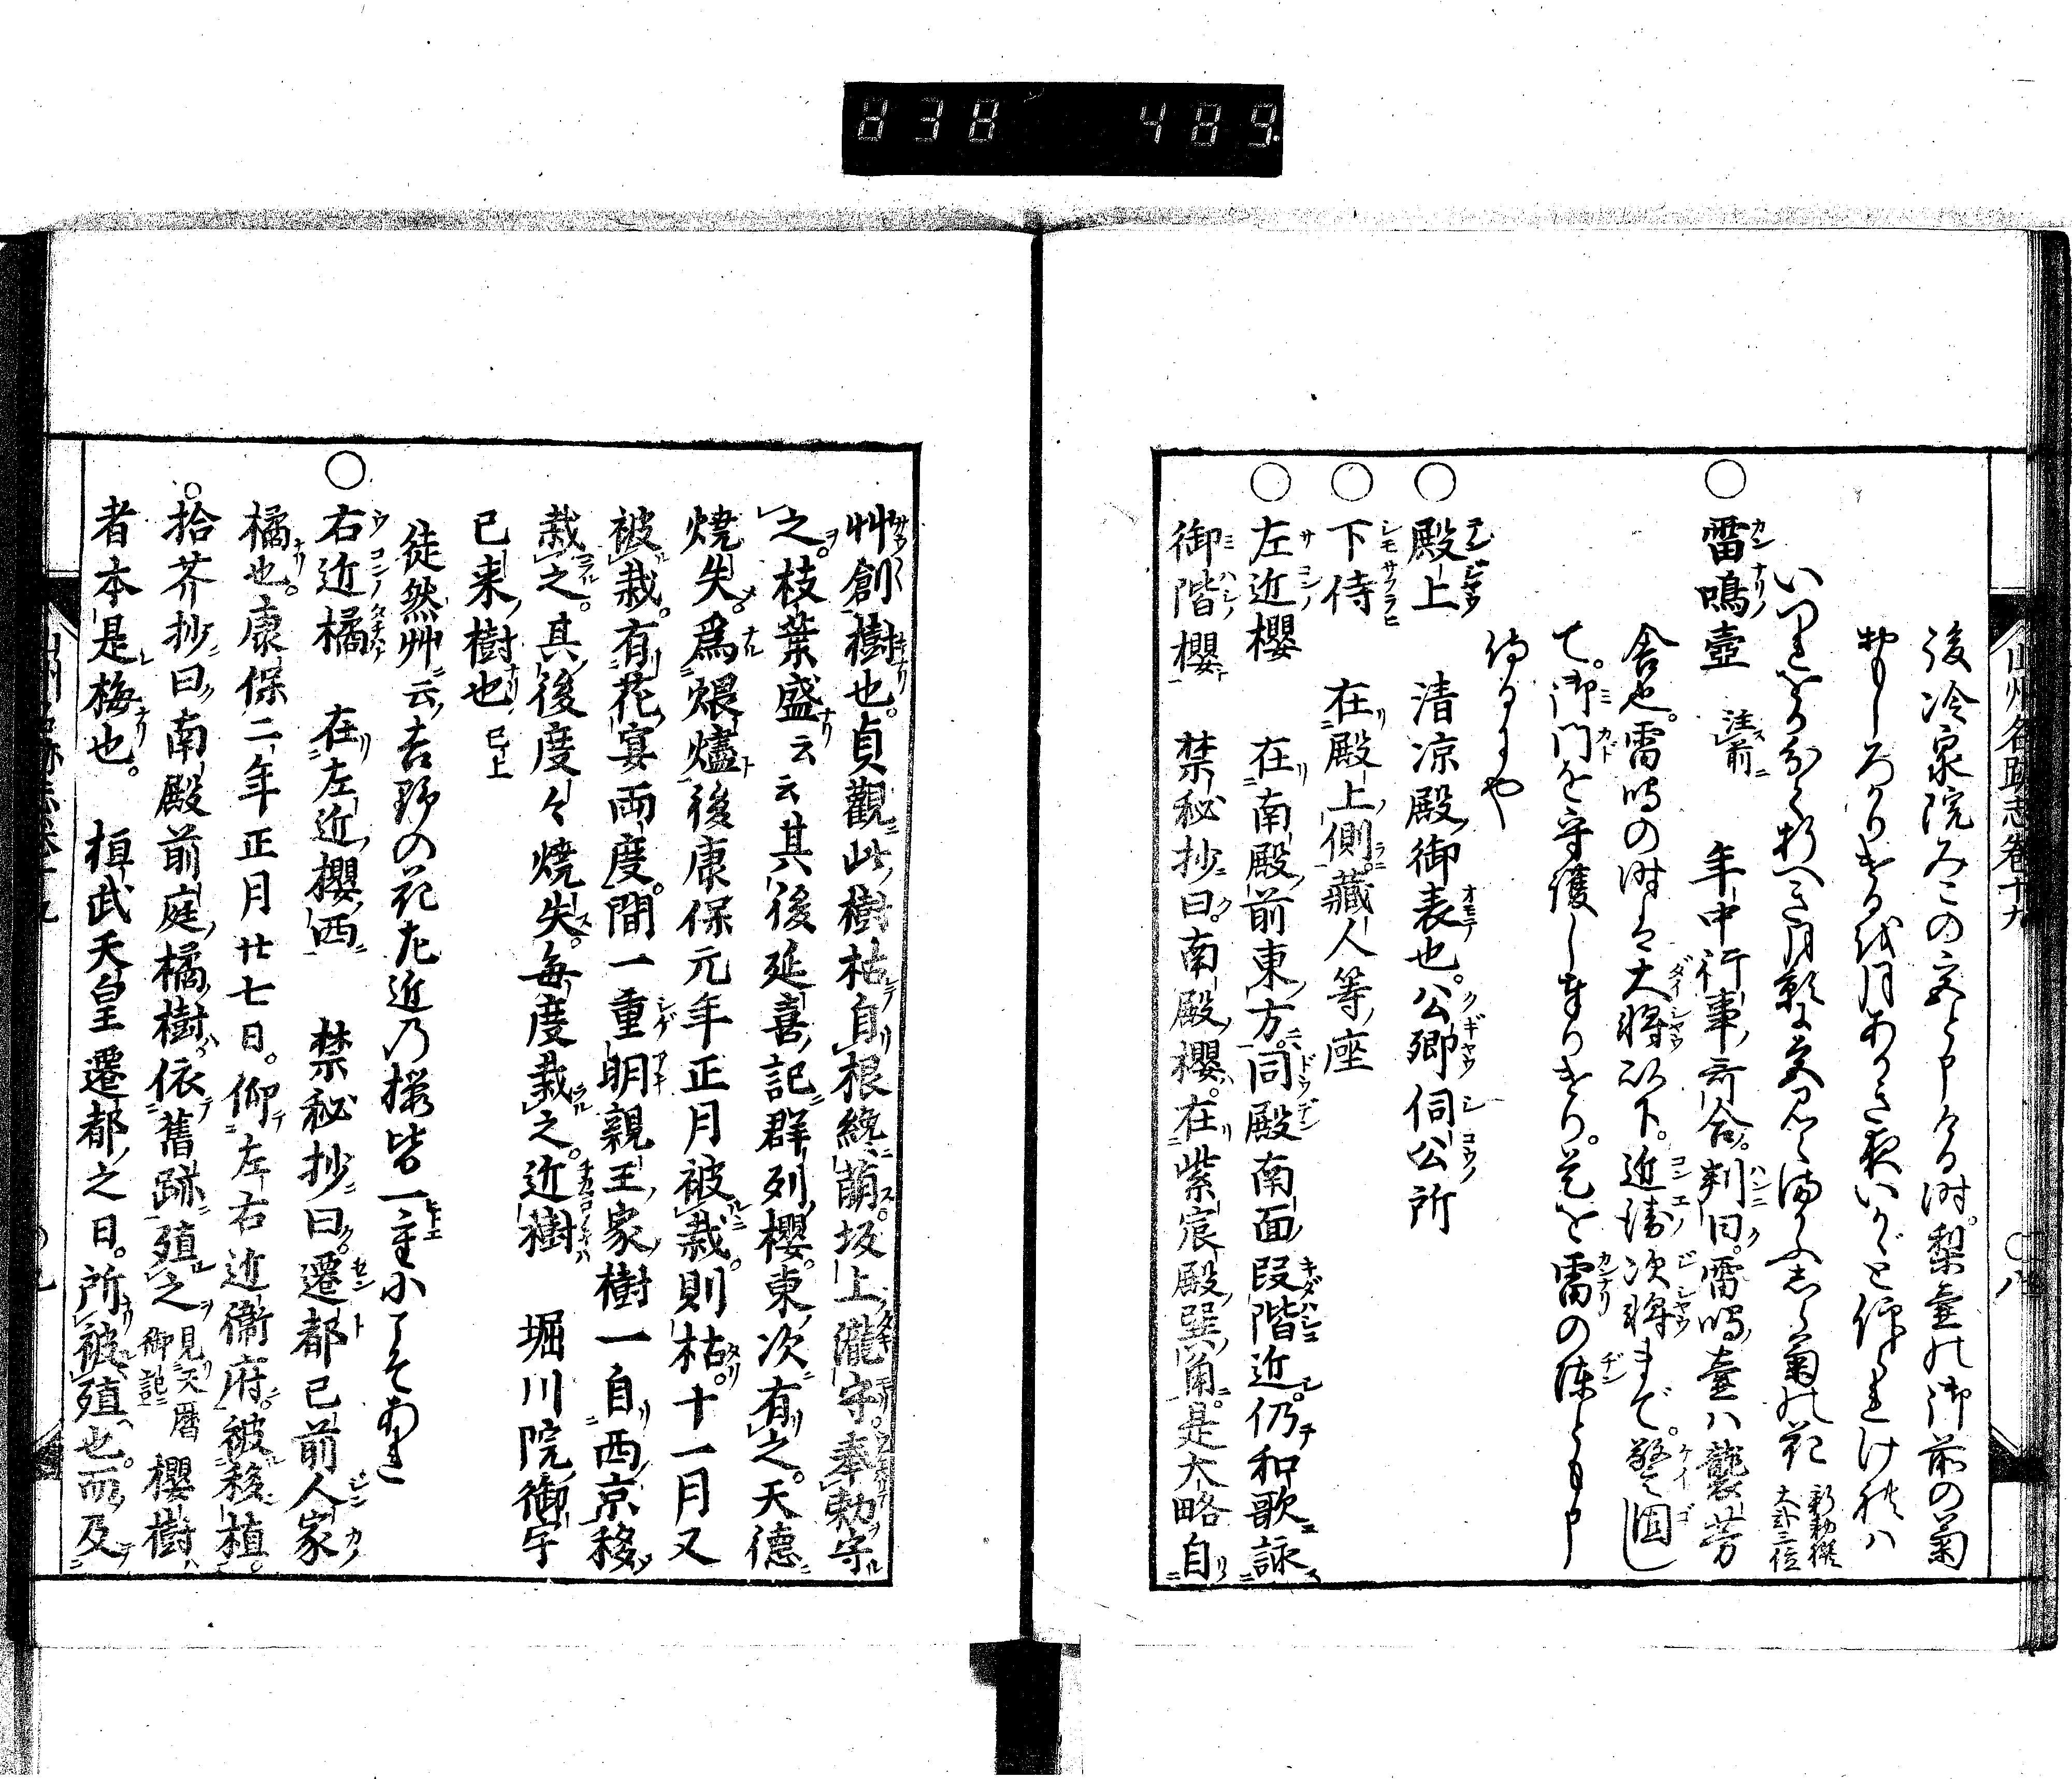 838 489
山州名跡志巻十九
後冷泉院みこの宮と申ける時。梨壺の御前の菊
おもしろかりけるを月あかき夜いかゞと仰られければ
いづれをかわきて折べき月影に色見えまがふしら菊の花 新勅撰 大弐三位
○雷鳴壺 注前 年中行事歌合。判曰。雷鳴壺ハ襲芳
舎也。雷鳴の時は大将以下。近衛次将まで。警固し
て。御門を守護し奉りけり。是を雷の陣とも申
侍るにや
○殿上 清凉殿御表也。公卿伺公所
○下侍 在殿上側。藏人等座
○左近櫻 在南殿前東方。同殿南面段階近。仍和歌詠
御階櫻 禁秘抄曰。南殿櫻。在紫宸殿巽角。是大略自
艸創樹也。貞觀此樹枯。自根纔萠。坂上瀧守。奉勅守
之。枝葉盛云云其後延喜記群列櫻。東次有之。天德
燒失。爲煨燼。後康保元年正月被栽。則枯。十一月又
被栽。有花宴兩度。間一重明親王家樹一自西京移
栽之。其後度々燒失。毎度栽之。近樹 堀川院御宇
已来樹也 已上
徒然艸云吉野の花左近の櫻皆一重にてこそあれ
○右近橘 在左近櫻西 禁秘抄曰。遷都已前人家
橘也。康保二年正月廿七日。仰左右近衞府。被移植。
○拾芥抄曰南殿前庭橘樹依舊跡殖之 見天暦御記 櫻樹
者本是梅也。 桓武天皇遷都之日。所被殖也。而及